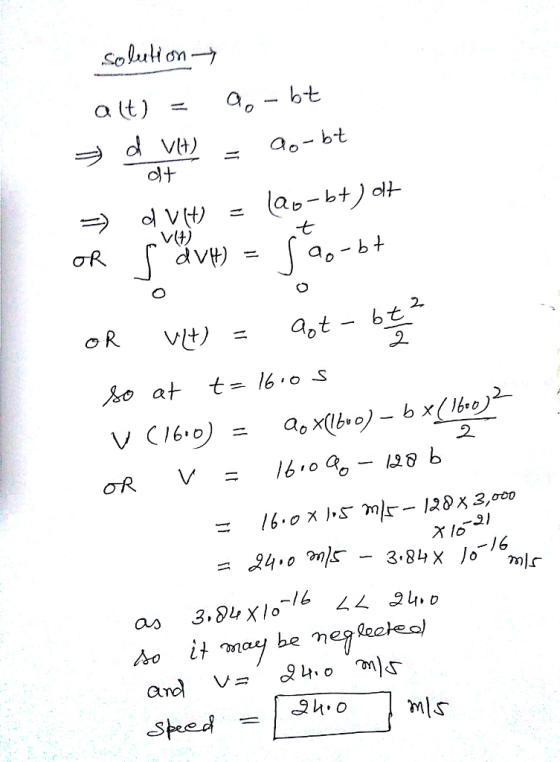 solution →
a(t) = a₀ - bt
⇒ d V(t)/dt = a₀ - bt
⇒ d V(t) = (a₀ - bt) dt
OR ∫₀^V(t) dV(t) = ∫₀^t a₀ - bt
OR V(t) = a₀t - bt²/2
so at t = 16.0 s
V (16.0) = a₀ x(16.0) - b x (16.0)²/2
OR V = 16.0 a₀ - 128 b
= 16.0 x 1.5 m/s - 128 x 3,000 x 10⁻²¹
= 24.0 m/s - 3.84 x 10⁻¹⁶ m/s
as 3.84 x 10⁻¹⁶ << 24.0
so it may be neglected
and V = 24.0 m/s
speed = 24.0 m/s